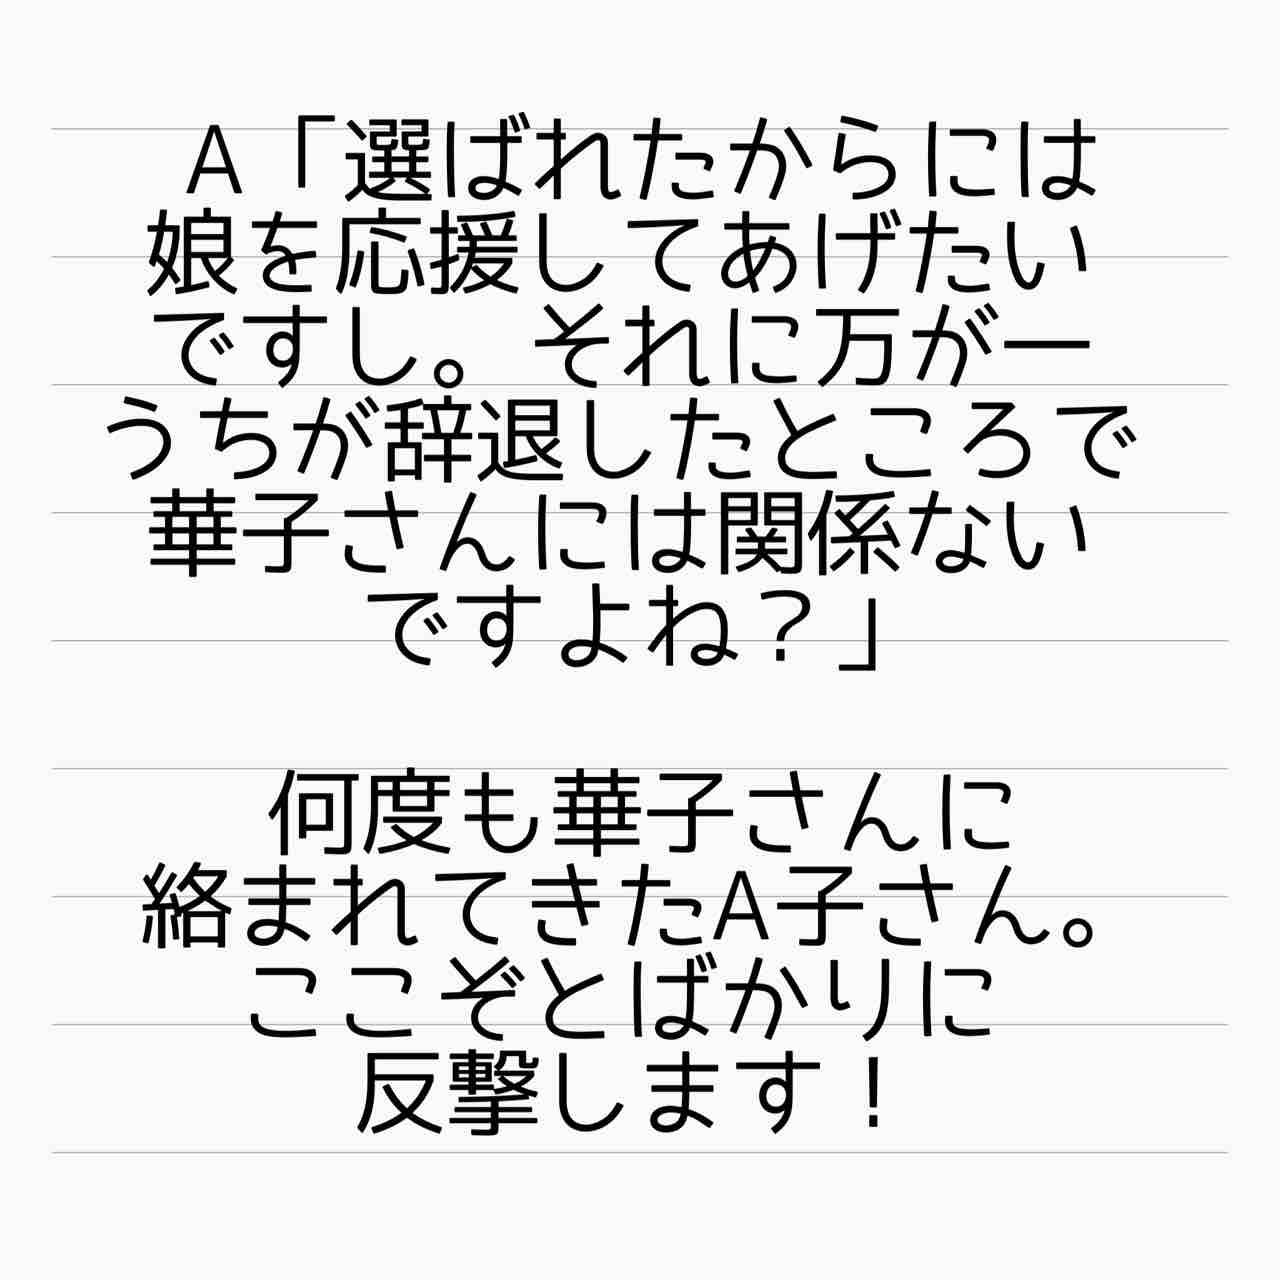 A「選ばれたからには
娘を応援してあげたい
ですし。それに万が一
うちが辞退したところで
華子さんには関係ない
ですよね？」
何度も華子さんに
絡まれてきたA子さん。
ここぞとばかりに
反撃します！